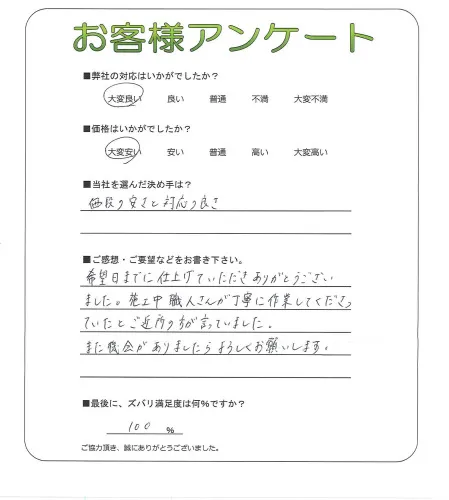 お客様アンケート
■弊社の対応はいかがでしたか?
大変良い 良い 普通 不満 大変不満
■価格はいかがでしたか?
大変安い 安い 普通 高い 大変高い
■当社を選んだ決め手は?
価段の安さと対応の良さ
■ご感想・ご要望などをお書き下さい。
希望日までに仕上げていただきありがとうござい
ました。施工中職人さんが丁寧に作業してくださっ
ていたとご近所の方が言っていました。
また機会がありましたらよろしくお願いします。
■最後に、ズバリ満足度は何%ですか?
100 %
ご協力頂き、誠にありがとうございました。